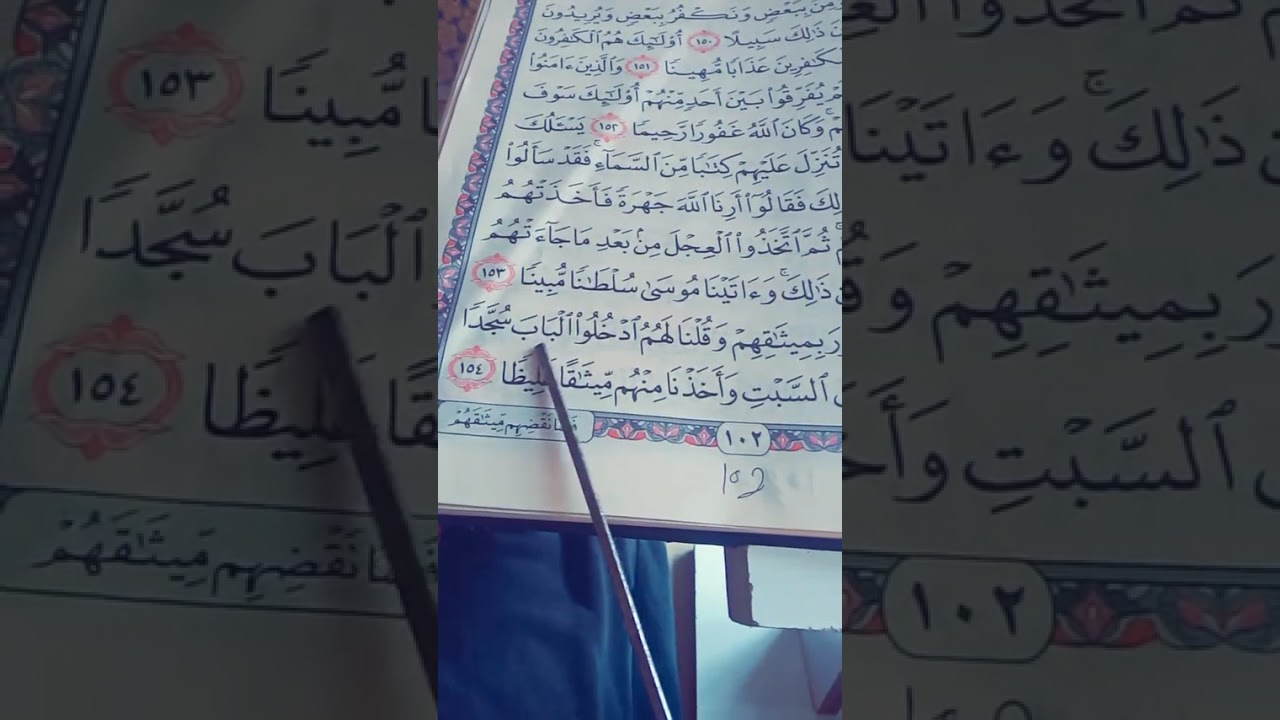 بِبَعْضٍ وَنَكْفُرُ بِبَعْضٍ وَيُرِيدُونَ
ذَٰلِكَ سَبِيلًا ١٥٠ أُو۟لَٰٓئِكَ هُمُ ٱلْكَٰفِرُونَ
عَذَابًا مُّهِينًا ١٥١ وَٱلَّذِينَ ءَامَنُوا۟
يُفَرِّقُوا۟ بَيْنَ أَحَدٍ مِّنْهُمْ أُو۟لَٰٓئِكَ سَوْفَ
وَكَانَ ٱللَّهُ غَفُورًا رَّحِيمًا ١٥٢ يَسْـَٔلُكَ
تُنَزِّلَ عَلَيْهِمْ كِتَٰبًا مِّنَ ٱلسَّمَآءِ ۚ فَقَدْ سَأَلُوا۟
فَقَالُوٓا۟ أَرِنَا ٱللَّهَ جَهْرَةً فَأَخَذَتْهُمُ
ثُمَّ ٱتَّخَذُوا۟ ٱلْعِجْلَ مِنۢ بَعْدِ مَا جَآءَتْهُمُ
ذَٰلِكَ ۚ وَءَاتَيْنَا مُوسَىٰ سُلْطَٰنًا مُّبِينًا ١٥٣
بِمِيثَٰقِهِمْ وَقُلْنَا لَهُمُ ٱدْخُلُوا۟ ٱلْبَابَ سُجَّدًا
ٱلسَّبْتِ وَأَخَذْنَا مِنْهُم مِّيثَٰقًا غَلِيظًا ١٥٤
نَقْضِهِم مِّيثَٰقَهُمْ
١٠٢
102